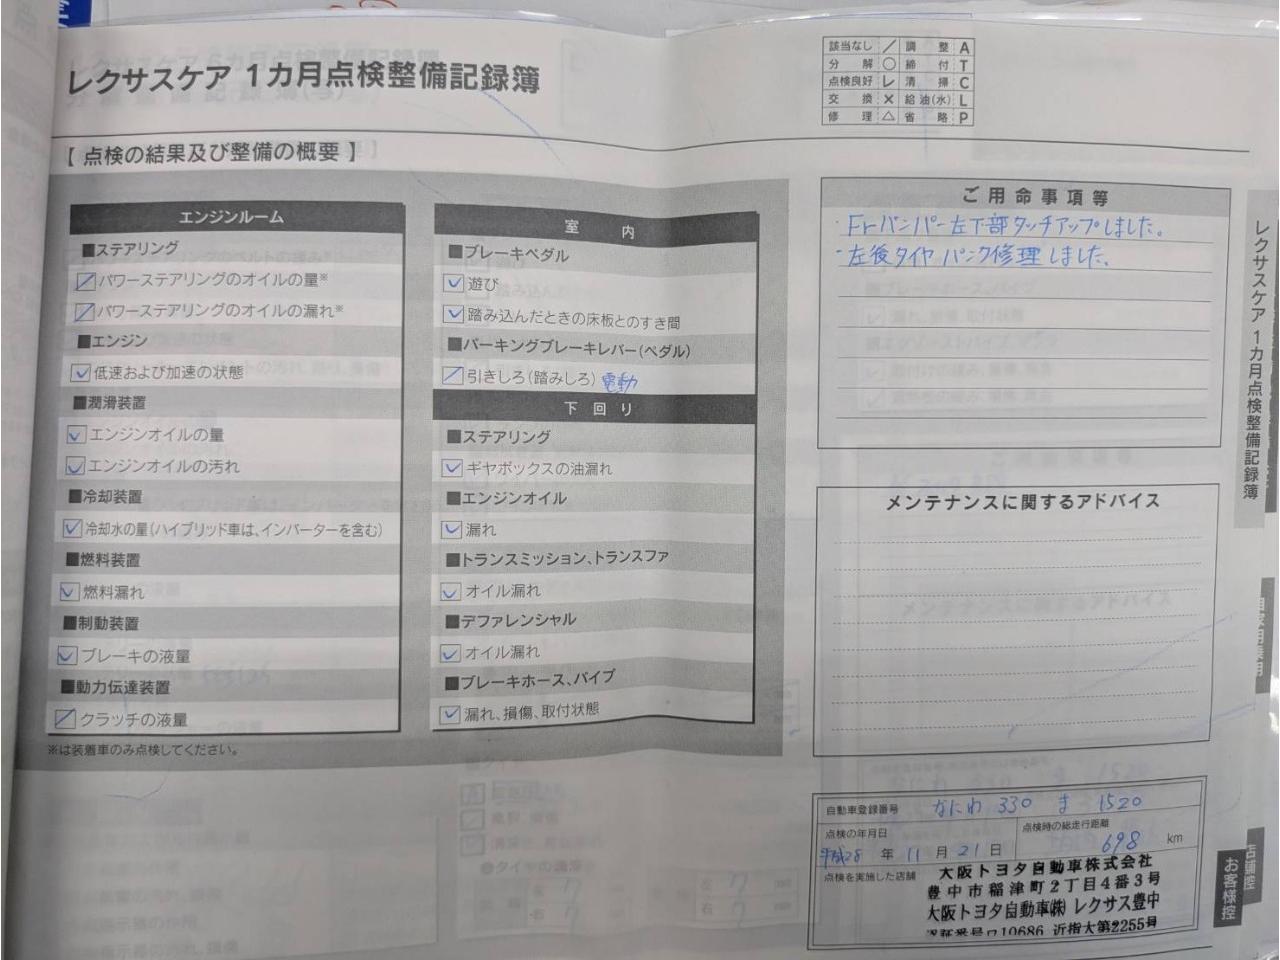 レクサスケア 1カ月点検整備記録簿
該当なし ／ 調整 A
分解 ○ 締付 T
点検良好 レ 清掃 C
交換 × 給油(水) L
修理 △ 省略 P
【 点検の結果及び整備の概要 】
エンジンルーム
■ステアリング
パワーステアリングのオイルの量※
パワーステアリングのオイルの漏れ※
■エンジン
低速および加速の状態
■潤滑装置
エンジンオイルの量
エンジンオイルの汚れ
■冷却装置
冷却水の量(ハイブリッド車は、インバーターを含む)
■燃料装置
燃料漏れ
■制動装置
ブレーキの液量
■動力伝達装置
クラッチの液量
※は装着車のみ点検してください。
室内
■ブレーキペダル
遊び
踏み込んだときの床板とのすき間
■パーキングブレーキレバー(ペダル)
引きしろ(踏みしろ) 電動
下回り
■ステアリング
ギヤボックスの油漏れ
■エンジンオイル
漏れ
■トランスミッション、トランスファ
オイル漏れ
■デファレンシャル
オイル漏れ
■ブレーキホース、パイプ
漏れ、損傷、取付状態
ご用命事項等
・Frバンパー左下部タッチアップしました。
・左後タイヤ パンク修理しました。
メンテナンスに関するアドバイス
自動車登録番号 なにわ 330 ま 1520
点検の年月日
平成28 年 11 月 21 日
点検時の総走行距離
698 km
点検を実施した店舗
大阪トヨタ自動車株式会社
豊中市稲津町2丁目4番3号
大阪トヨタ自動車㈱ レクサス豊中
認証番号ロ10686 近指大第2255号
レクサスケア 1カ月点検整備記録簿
自家用乗用
店舗控
お客様控